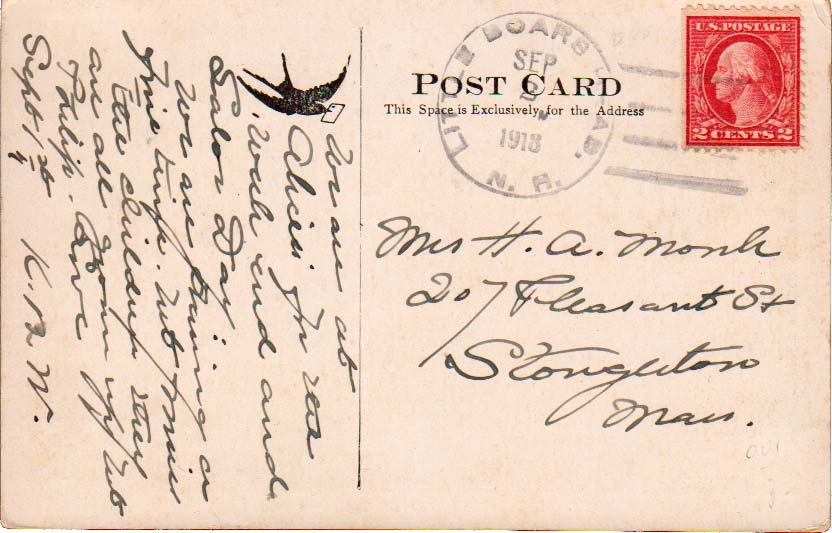 POST CARD
This Space is Exclusively for the Address
LITTLE BOARS HEAD, N. H.
SEP
2
1918
U.S. POSTAGE
2 CENTS 2
Mrs H. A. Monk
207 Pleasant St
Stoughton
Mass.
We are at
Alicia's for
week end and
Labor Day.
We are having a
fine time. but miss
the children they
are all grown up but
Philip. Love
Sept 1st K. M. W.